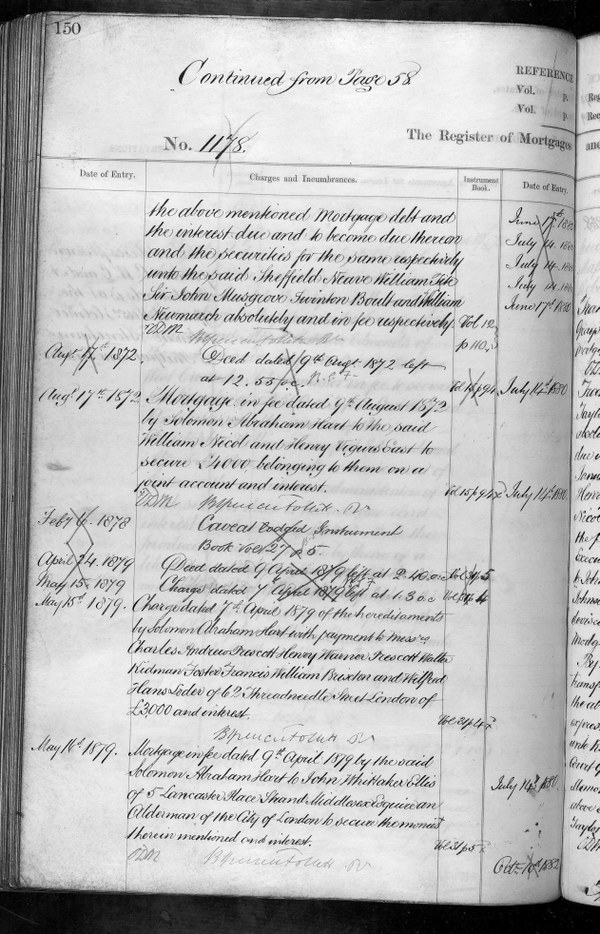 150
Continued from Page 58
REFERENCE
Vol. p.
Vol. p.
No. 1178.
The Register of Mortgages
Date of Entry.
Charges and Incumbrances.
Instrument Book.
Date of Entry.
the above mentioned Mortgage debt and
the interest due and to become due thereon
and the securities for the same respectively
unto the said Sheffield Neave William Tite
Sir John Musgrove Swinton Boult and William
Newmarch absolutely and in fee respectively Vol. 12
p 110.
June 17th
July 14
July 14
July 14
June 17th 1880
Augt. 17th 1872. Deed dated 9th Augt. 1872 left
at 12.55
Vol 15 p 94 July 14th 1880
Augt 17th 1872 Mortgage in fee dated 9th August 1872
by Solomon Abraham Hart to the said
William Nicol and Henry Vigurs East to
secure £4000 belonging to them on a
joint account and interest.
Vol. 15 p 94 July 14th 1880
Feby 6. 1878 Caveat lodged Instrument
Book Vol 27 p 5
April 24. 1879 Deed dated 9 April 1879 left at 2.40
May 15. 1879 Charge dated 7th April 1879 left at 1.3
May 15th 1879. Charge dated 7th April 1879 of the hereditaments
by Solomon Abraham Hart with payment to Messrs
Charles Andrew Prescott Henry Warner Prescott Walter
Kidman Foster Francis William Buxton and Wilfred
Hans Loder of 62 Threadneedle Street London of
£3000 and interest.
Vol 31 p 4
May 16th 1879. Mortgage in fee dated 9th April 1879 by the said
Solomon Abraham Hart to John Whittaker Ellis
of 5 Lancaster Place Strand Middlesex Esquire an
Alderman of the City of London to secure the monies
therein mentioned and interest.
Vol 31 p 5
July 14th 1880.
Octr. 10th 1882